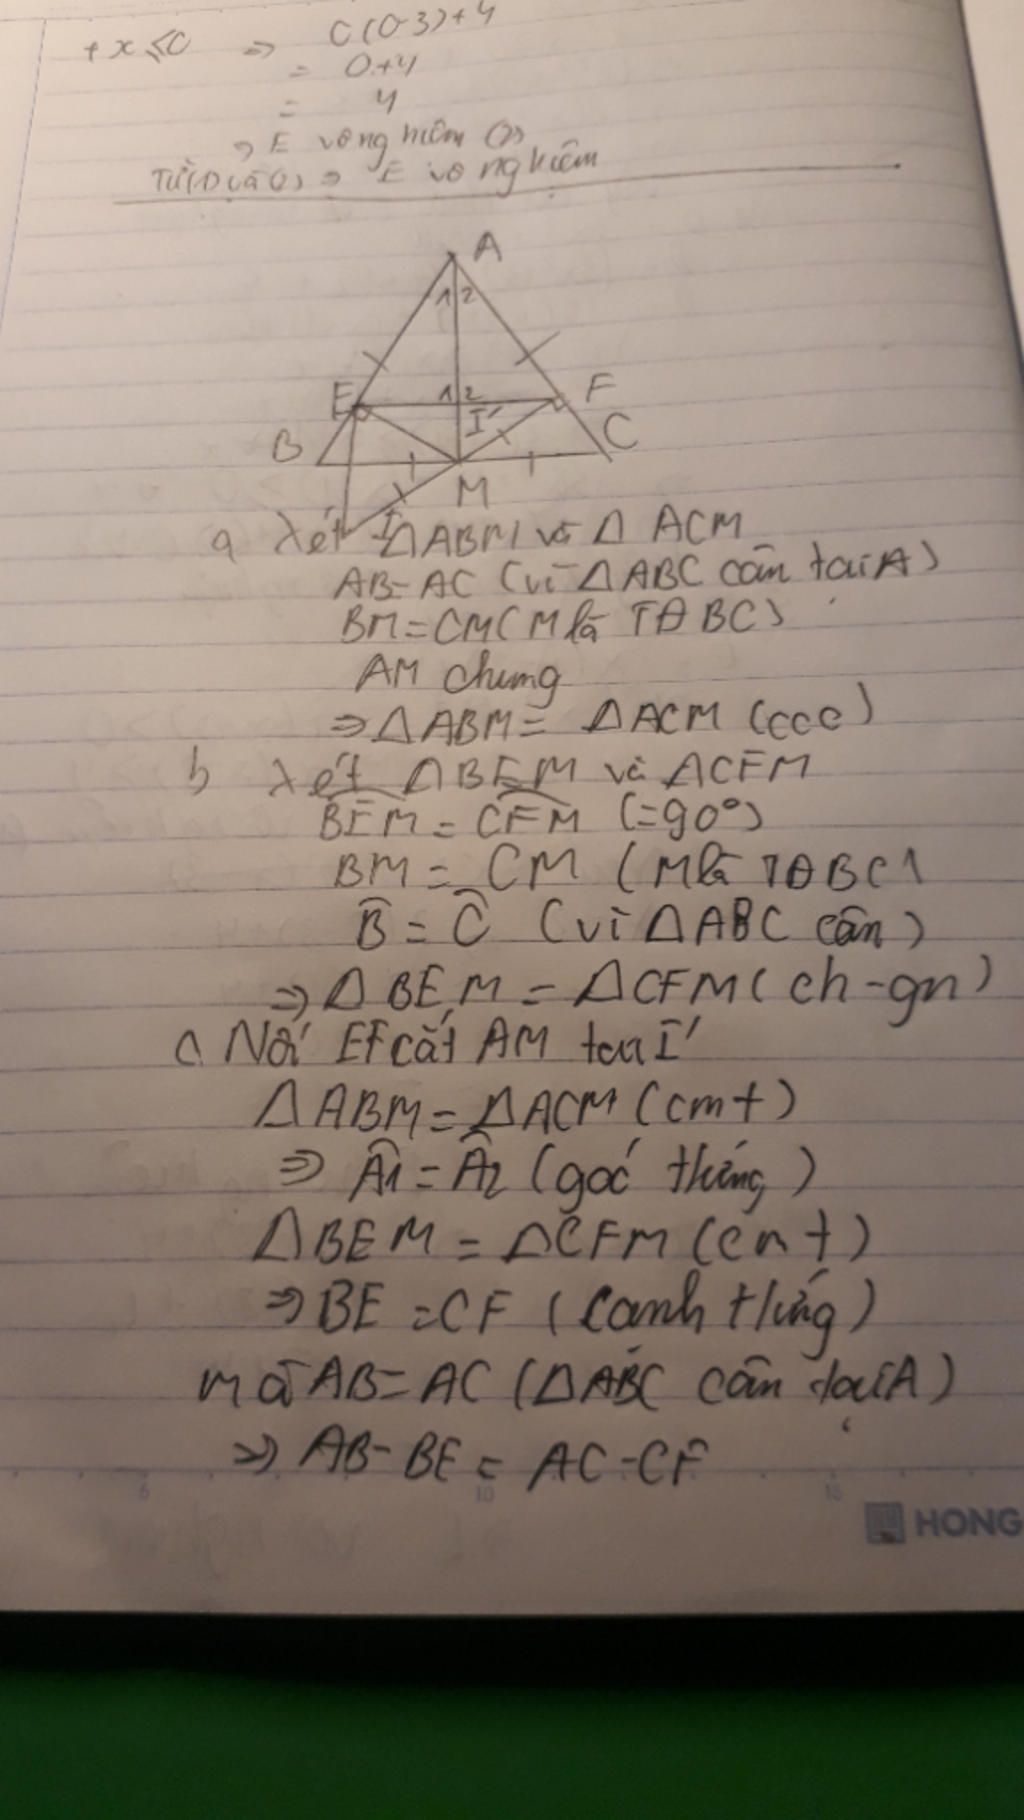 + x ≤ 0 ⇒ 0(0-3)+4
= 0+4
= 4
⇒ E vô nghiệm (2)
Từ (1) và (2) ⇒ E vô nghiệm
A
1 2
E
1 2
F
I'
B
C
M
I
a Xét ΔABM và Δ ACM
AB=AC (vì ΔABC cân tại A)
BM=CM (M là TĐ BC)
AM chung
⇒ ΔABM = ΔACM (ccc)
b Xét ΔBEM và ΔCFM
BEM = CFM (=90°)
BM = CM (M là TĐ BC)
B̂ = Ĉ (vì ΔABC cân)
⇒ Δ BEM = ΔCFM (ch-gn)
c Nối EF cắt AM tại I'
ΔABM = ΔACM (cmt)
⇒ Â1 = Â2 (góc t/ứng)
ΔBEM = ΔCFM (cmt)
⇒ BE = CF (cạnh t/ứng)
mà AB = AC (ΔABC cân tại A)
⇒ AB - BE = AC - CF
6 10 15
HONG